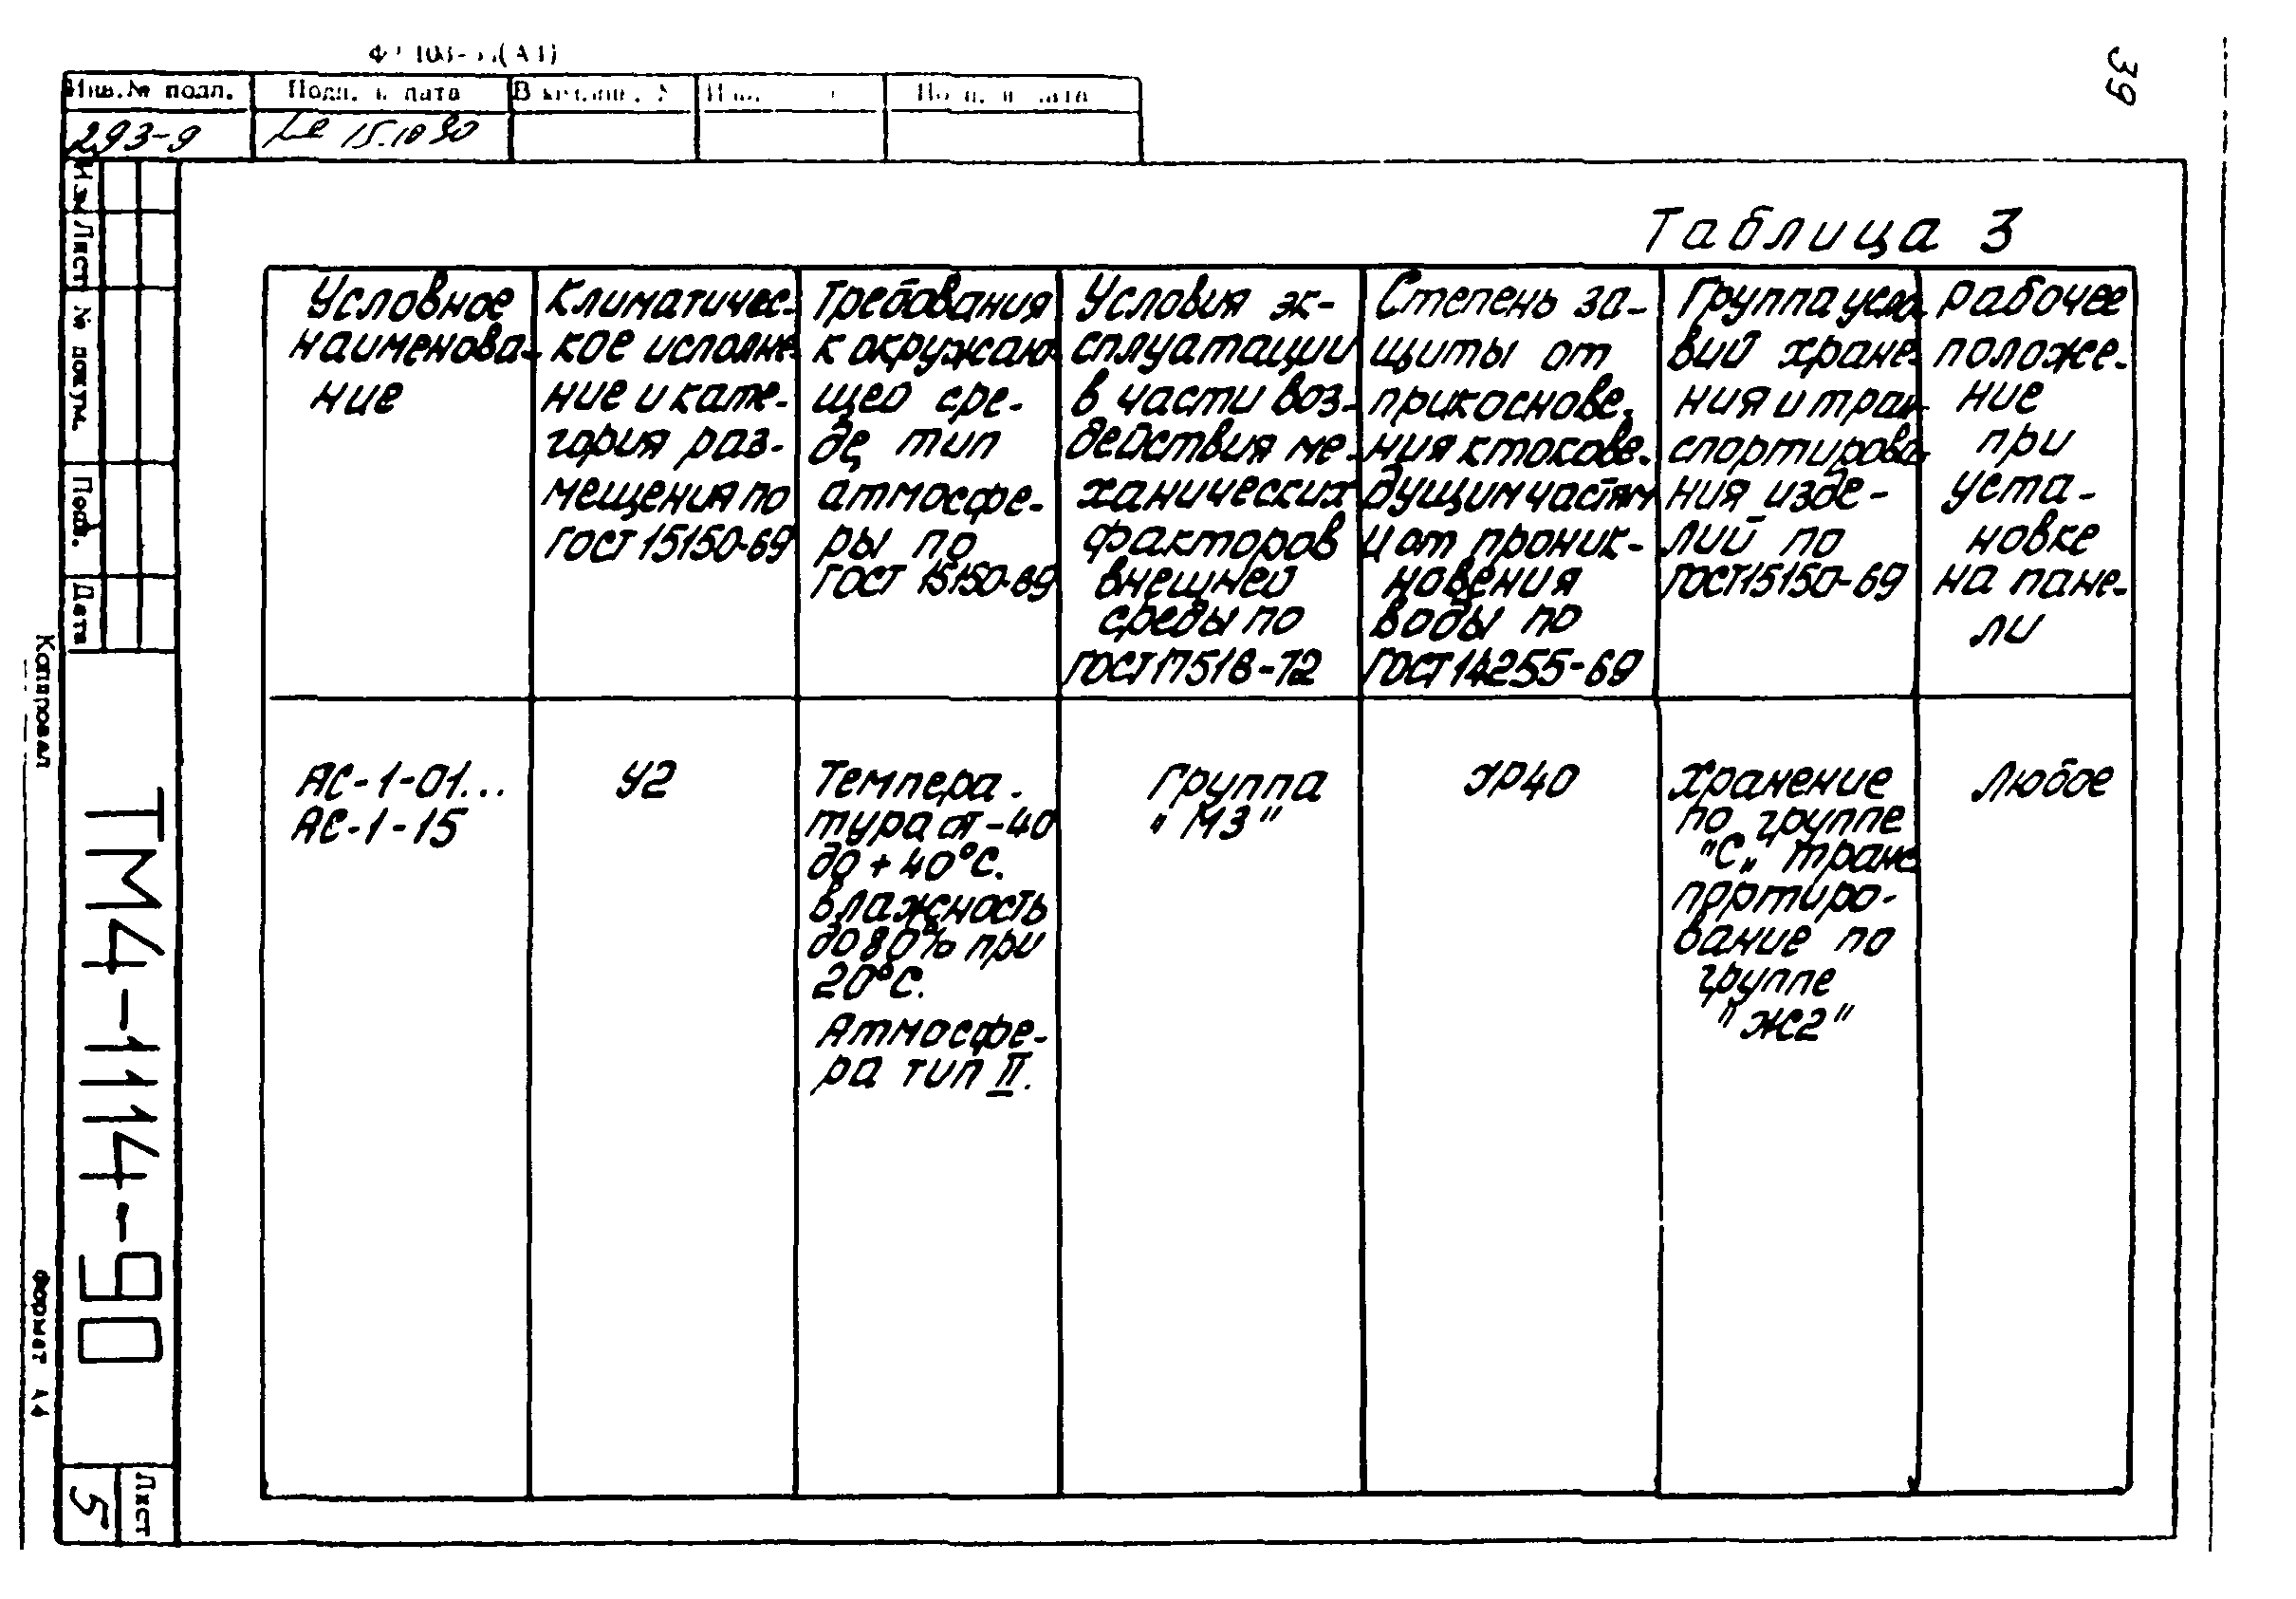 39
Инв.№ подл.
Подп. и дата
293-9
15.10 90
Изм
Лист
№ докум.
Подп.
Дата
Копировал
ТМ4-1114-90
Формат А4
Лист
5
Таблица 3
Условное
наименова-
ние
Климатичес-
кое исполне-
ние и кате-
гория раз-
мещения по
ГОСТ 15150-69
Требования
к окружаю-
щей сре-
де, тип
атмосфе-
ры по
ГОСТ 15150-69
Условия эк-
сплуатации
в части воз-
действия ме-
ханических
факторов
внешней
среды по
ГОСТ 17516-72
Степень за-
щиты от
прикоснове-
ния к токове-
дущим частям
и от проник-
новения
воды по
ГОСТ 14255-69
Группа усло-
вий хране-
ния и тран-
спортирова-
ния изде-
лий по
ГОСТ 15150-69
Рабочее
положе-
ние
при
уста-
новке
на пане-
ли
АС-1-01...
АС-1-15
У2
Темпера-
тура от -40
до +40°С.
Влажность
до 80% при
20°С.
Атмосфе-
ра тип II.
Группа
"М3"
УР40
Хранение
по группе
"С„ транс
портиро-
вание по
группе
"Ж2"
Любое